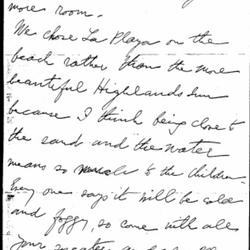 more room.
We chose La Playa on the
beach rather than the more
beautiful Highlands Inn
because I think being close to
the sand and the water
means so much to the children
Every one says it will be cold
and foggy, so come with all
your sweaters